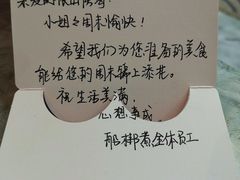 亲爱的
小姐女周末愉快！
希望我们为您准备的美食
能给您的周末锦上添花。
祝生活美满，
心想事成
那都煮全体员工